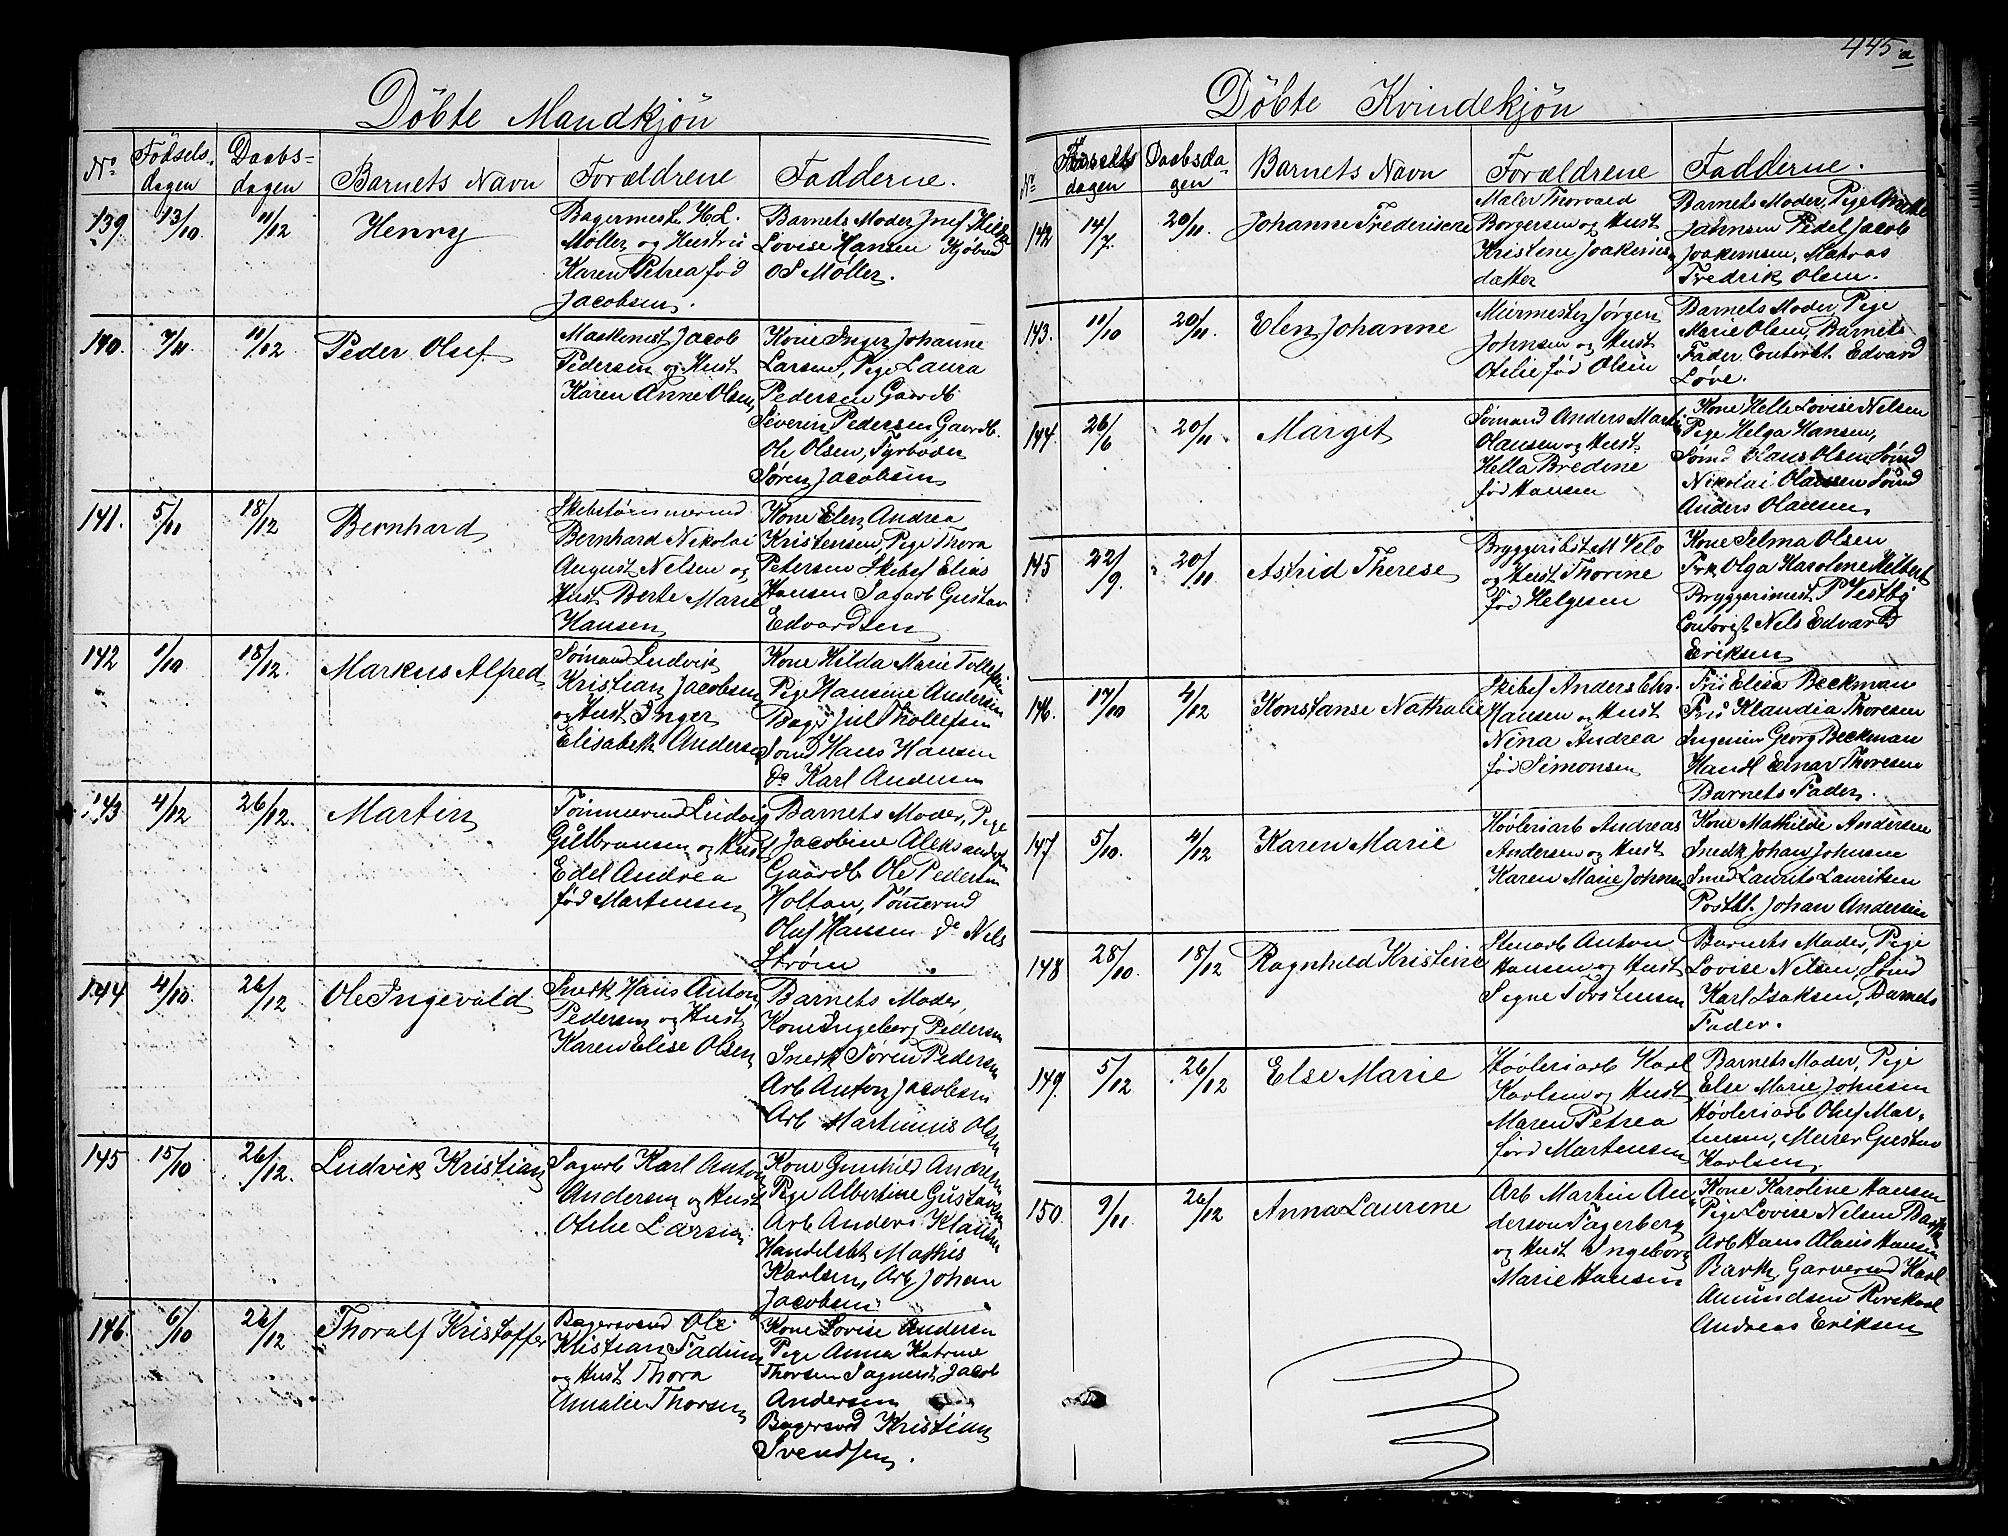 Döbte Mandkjön
No
Födsels-
dagen
Daabs-
dagen
Barnets Navn
Forældrene
Fadderne.
139.
13/10
11/12
Henry
Bagermester H. L.
Möller og Hustru
Karen Petrea fød
Jacobsen.
Barnets Moder Jnf Hilda
Lovise Hansen Kjøbmd
O S Møller.
140.
7/11
11/12
Peder Oluf
Maskenist Jacob
Pedersen og Hust
Karen Anne Olsen
Kone Inger Johanne
Larsen, Pige Laura
Pedersen Gaardb
Severin Pedersen Gaardb.
Ole Olsen, Fyrbøder
Søren Jacobsen
141.
5/11
18/12
Bernhard
Skibstømmermd
Bernhard Nikolai
August Nelsen og
Hust Berte Marie
Hansen
Kone Elen Andrea
Kristensen, Pige Thora
Petersen Skibsf Elias
Hansen Sagarb Gustav
Edvardsen
142
1/10
18/12.
Markus Alfred
Sømand Ludvik
Kristian Jacobsen
og Hust Inger
Elisabeth Andersen
Kone Hilda Marie Tollefsen
Pige Hansine Andersen
Bager Jul Thollefsen
Sømd Hans Hansen
do Karl Andersen
143
4/12
26/12.
Martin
Tømmermd Ludvig
Gulbransen og Hust
Edel Andrea
fød Martensen
Barnets Moder, Pige
Jacobine Aleksandersen
Gaardb Ole Pedersen
Holtan, Tømmermd
Oluf Hansen do Nels
Strøm
144
4/10.
26/12
Ole Ingevald
Snedk Hans Anton
Pedersen og Hust
Karen Elise Olsen
Barnets Moder,
Kone Ingeborg Pedersen
Snedk Søren Pedersen
Arb Anton Jacobsen
Arb Martinius Olsen
145
15/10
26/12.
Ludvik Kristian
Sagarb Karl Anton
Andersen og Hust
Otilie Larsen
Kone Gunhild Andresen
Pige Albertine Gustavsen
Arb Anders Klausen
Handelsbt Mathis
Karlsen, Arb Johan
Jacobsen
146.
6/10
26/12
Thoralf Kristoffer
Bagersvend Ole
Kristian Fadum
og Hust Thora
Amalie Thorsen
Kone Lovise Andersen
Pige Anna Katrine
Thorsen Sagmest Jacob
Andersen
Bagersvd Kristian
Svendsen.
445 a
Döbte Kvindekjön
No
Fødsels
dagen
Daabsda-
gen
Barnets Navn
Forældrene
Fadderne.
142
14/7
20/11.
Johanne Frederikke
Maler Thorvald
Borgersen og Hust
Kristene Joakems
datter
Barnets Moder, Pige
Jahnsen Pedel Jacob
Joakemsen, Matros
Fredrik Olsen.
143.
11/10
20/11.
Elen Johanne
Murmester Jørgen
Johnsen og Hust
Otilie fød Olsen
Barnets Moder, Pige
Marie Olsen, Barnets
Fader Contorbt Edvard
Løve.
144.
26/6
20/11.
Marget
Sømand Anders Martin
Olausen og Hust
Hella Bredine
fød Hansen
Kone Helle Lovise Nelsen
Pige Helga Hansen,
Sømd Klaus Olsen Sømd
Nikolai Olaussen Sømd
Anders Olausen
145
22/9.
20/11
Astrid Therese
Bryggeribst M Velo
og Hust Thorine
fød Helgesen
Kone Selma Olsen
Frk Olga Karoline Hilbert
Bryggerimest. P Vestby
Contorist Nels Edvard
Eriksen
146.
17/10
4/12
Konstanse Nathalie
Skibsf Anders Chr.
Hansen og Hust
Nina Andrea
fød Simonsen
Fru Elisa Beckman
Fru Klaudia Thoresen
Ingeniør Georg Beckman
Handl Einar Thoresen
Barnets Fader.
147
5/10.
4/12
Karen Marie
Høvleriarb Andreas
Andersen og Hust
Karen Marie Johnsen
Kone Mathilde Andersen
Snedk Johan Johnsen
Smed Laurits Lauritsen
Postbt. Johan Andersen
148
28/10.
18/12
Ragnhild Kristine
Stenarb Anton
Hansen og Hust
Signe Torstensen
Barnets Moder, Pige
Lovise Nelsen, Sømd
Karl Isaksen, Barnets
Fader.
149.
5/12
26/12
Else Marie
Høvleriarb Karl
Karlsen og Hust
Maren Petrea
fød Martensen
Barnets Moder, Pige
Else Marie Johnsen
Høvleriarb Oluf Mar-
tensen, Murer Gustav
Karlsen
150.
9/11
26/12
Anna Laurene
Arb Martin An-
derson Fagerberg
og Hust Ingeborg
Marie Hansen
Kone Karoline Hansen
Pige Lovise Nelsen
Arb Hans Olaus Hansen
Garversvd Karl
Amundsen
Andreas Eriksen